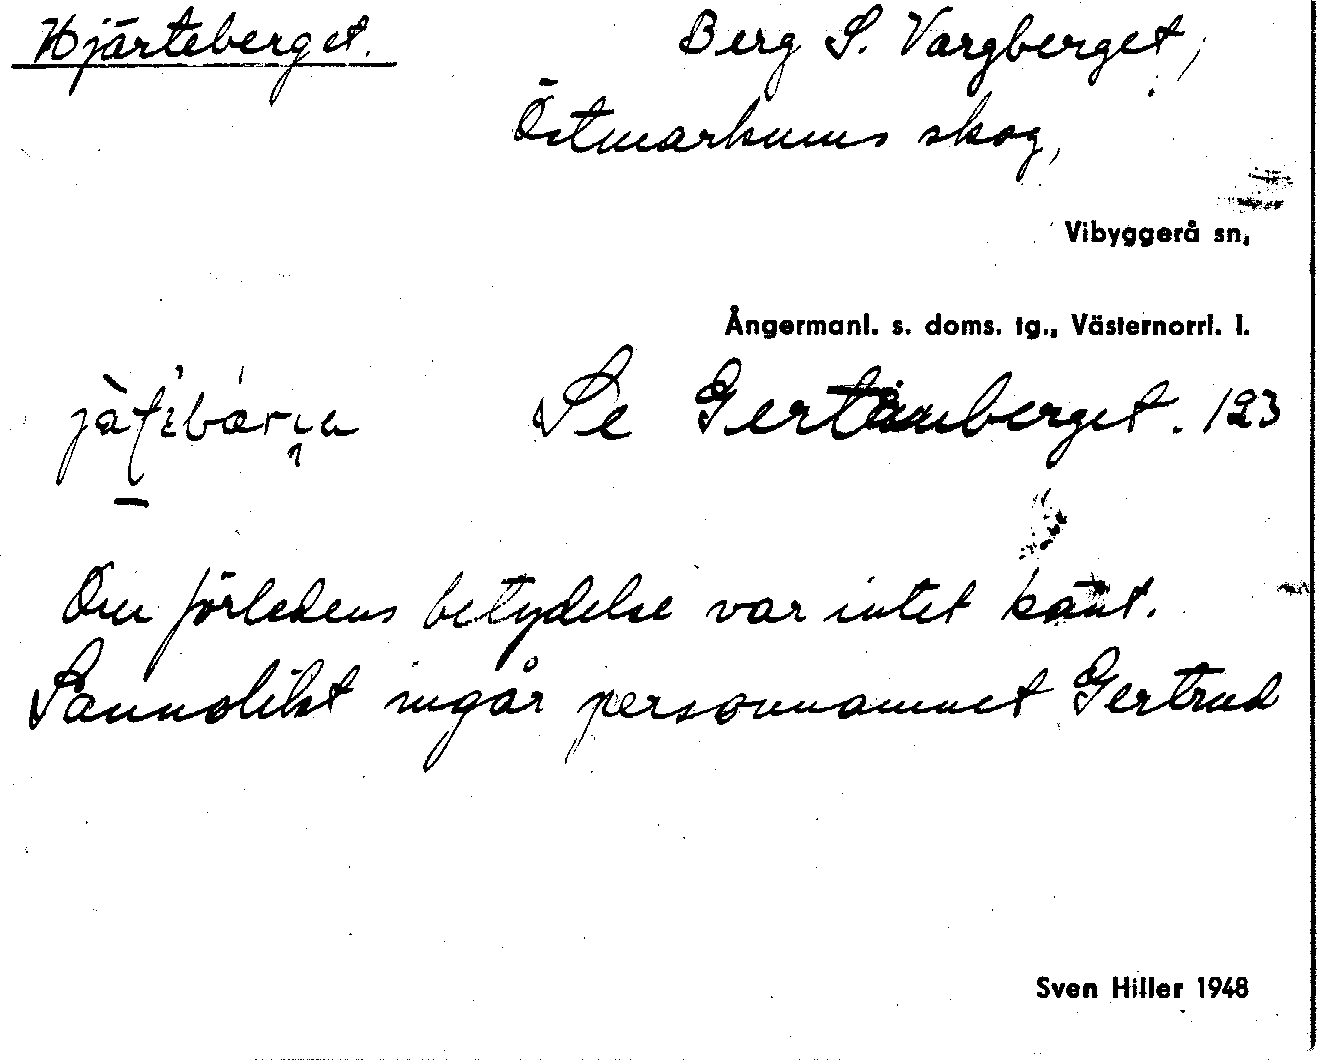 Hjärteberget.
Berg S. Vargberget,
Östmarkums skog,
Vibyggerå sn,
Ångermanl. s. doms. tg., Västernorrl. l.
Se Gertimberget. 123
Om förledens betydelse var intet känt.
Sannolikt ingår personnamnet Gertrud
Sven Hiller 1948